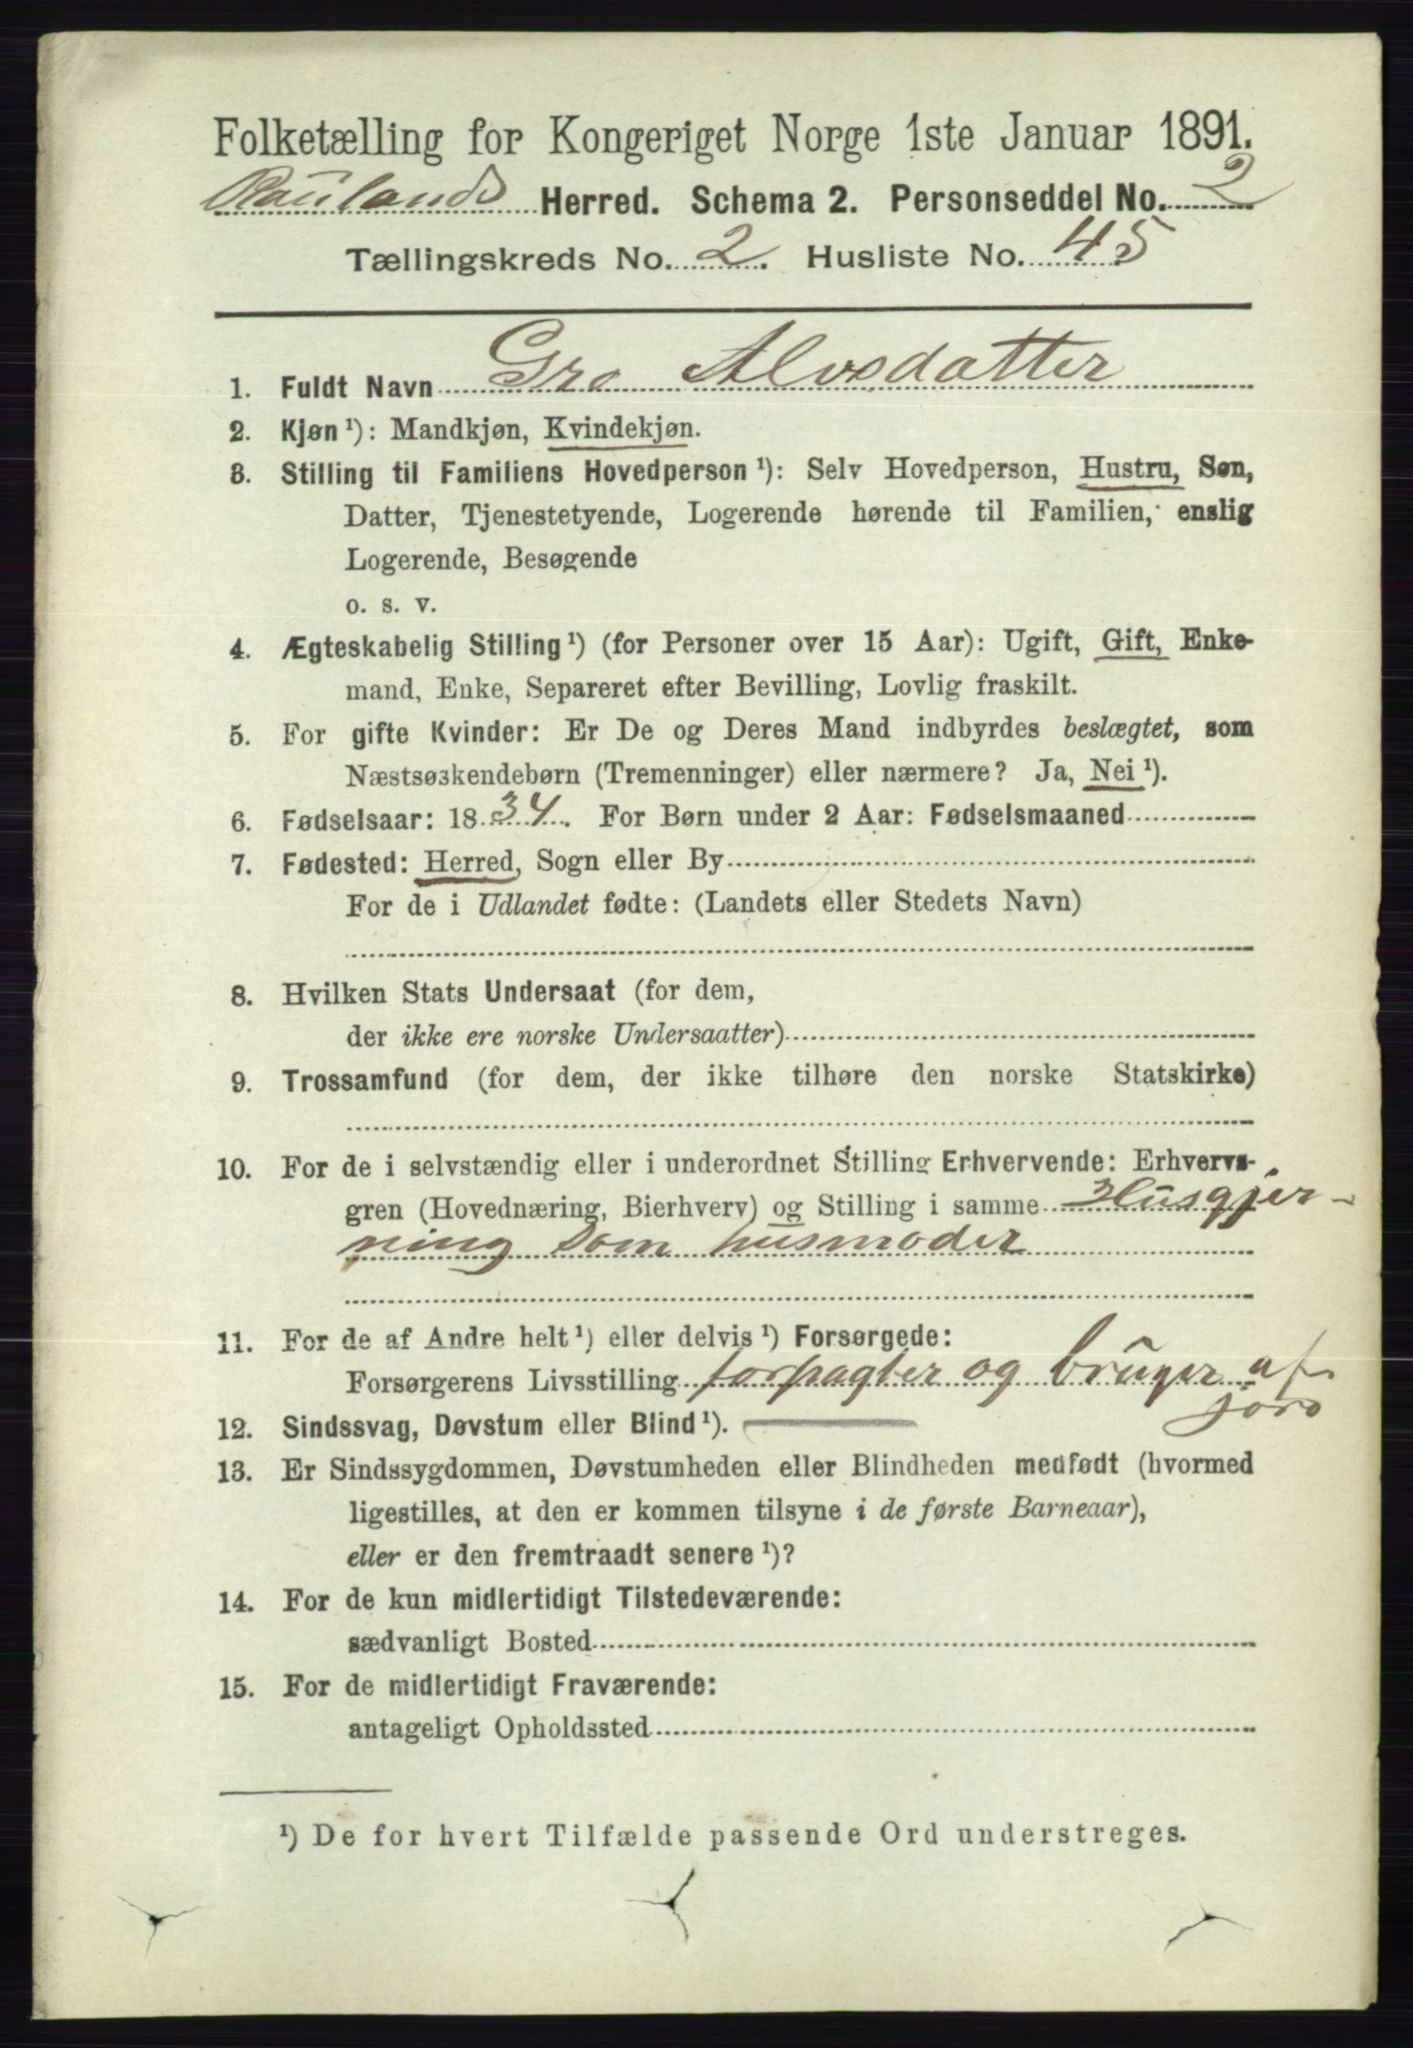 Folketælling for Kongeriget Norge 1ste Januar 1891.
Raulands Herred. Schema 2. Personseddel No. 2
Tællingskreds No. 2. Husliste No. 45
1. Fuldt Navn Gro Alvsdatter
2. Kjøn ¹): Mandkjøn, Kvindekjøn.
3. Stilling til Familiens Hovedperson ¹): Selv Hovedperson, Hustru, Søn,
Datter, Tjenestetyende, Logerende hørende til Familien, enslig
Logerende, Besøgende
o. s. v.
4. Ægteskabelig Stilling ¹) (for Personer over 15 Aar): Ugift, Gift, Enke-
mand, Enke, Separeret efter Bevilling, Lovlig fraskilt.
5. For gifte Kvinder: Er De og Deres Mand indbyrdes beslægtet, som
Næstsøskendebørn (Tremenninger) eller nærmere? Ja, Nei ¹).
6. Fødselsaar: 1834. For Børn under 2 Aar: Fødselsmaaned
7. Fødested: Herred, Sogn eller By
For de i Udlandet fødte: (Landets eller Stedets Navn)
8. Hvilken Stats Undersaat (for dem,
der ikke ere norske Undersaatter)
9. Trossamfund (for dem, der ikke tilhøre den norske Statskirke)
10. For de i selvstændig eller i underordnet Stilling Erhvervende: Erhvervs-
gren (Hovednæring, Bierhverv) og Stilling i samme Husgjer-
ning som husmoder
11. For de af Andre helt ¹) eller delvis ¹) Forsørgede:
Forsørgerens Livsstilling forpagter og bruger af
jord
12. Sindssvag, Døvstum eller Blind ¹).
13. Er Sindssygdommen, Døvstumheden eller Blindheden medfødt (hvormed
ligestilles, at den er kommen tilsyne i de første Barneaar),
eller er den fremtraadt senere ¹)?
14. For de kun midlertidigt Tilstedeværende:
sædvanligt Bosted
15. For de midlertidigt Fraværende:
antageligt Opholdssted
¹) De for hvert Tilfælde passende Ord understreges.